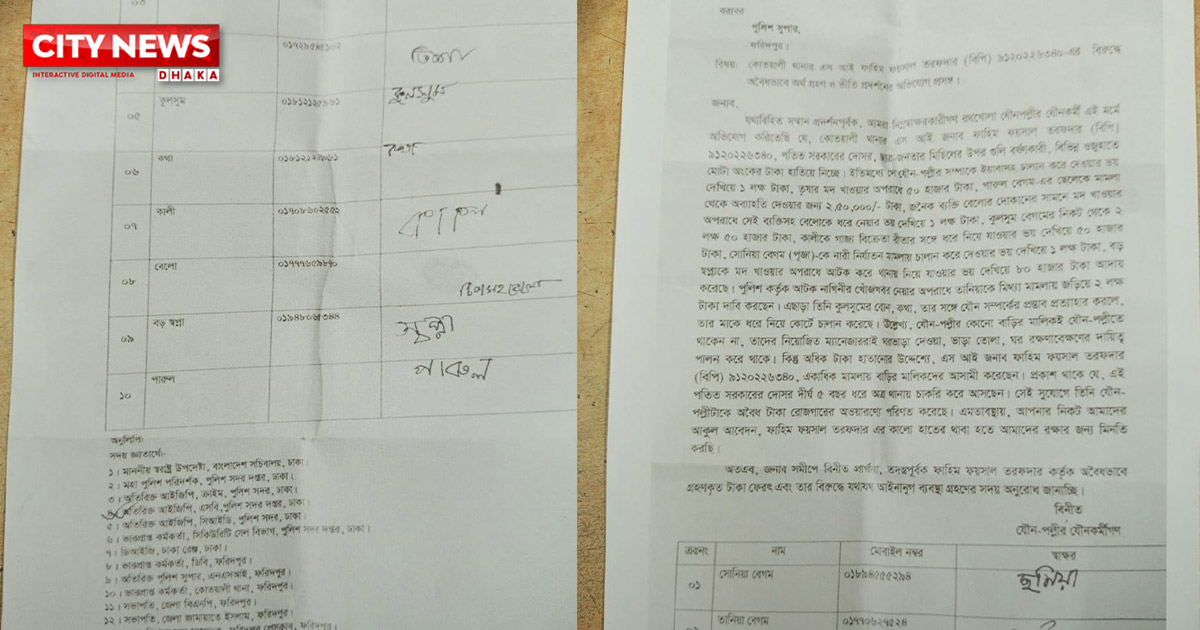 CITY NEWS
INTERACTIVE DIGITAL MEDIA
DHAKA
০১৭২৮৫৪৫১০২
০৫
কুলসুম
কুলসুম
০৬
কথা
কথা
০৭
কালী
০১৭০৮৬০২৫৫২
০৮
বেলো
টিপসহ বেলো
০৯
বড় স্বপ্না
স্বপ্না
১০
পারুল
পারুল
অনুলিপি:
সদয় জ্ঞাতার্থে:-
১। মাননীয় স্বরাষ্ট্র উপদেষ্টা, বাংলাদেশ সচিবালয়, ঢাকা।
২। মহা পুলিশ পরিদর্শক, পুলিশ সদর দপ্তর, ঢাকা।
৩। অতিরিক্ত আইজিপি, ক্রাইম, পুলিশ সদর, ঢাকা।
৪। অতিরিক্ত আইজিপি, এসবি, পুলিশ সদর দপ্তর, ঢাকা।
৫। অতিরিক্ত আইজিপি, সিআইডি, পুলিশ সদর, ঢাকা।
৬। ভারপ্রাপ্ত কর্মকর্তা, সিকিউরিটি সেল বিভাগ, পুলিশ সদর দপ্তর, ঢাকা।
৭। ডিআইজি, ঢাকা রেঞ্জ, ঢাকা।
৮। ভারপ্রাপ্ত কর্মকর্তা, ডিবি, ফরিদপুর।
৯। অতিরিক্ত পুলিশ সুপার, এনএসআই, ফরিদপুর।
১০। ভারপ্রাপ্ত কর্মকর্তা, কোতয়ালী থানা, ফরিদপুর।
১১। সভাপতি, জেলা বিএনপি, ফরিদপুর।
১২। সভাপতি, জেলা জামায়াতে ইসলাম, ফরিদপুর।
বরাবর
পুলিশ সুপার,
ফরিদপুর।
বিষয়: কোতয়ালী থানার এস আই ফাহিম ফয়সাল তরফদার (বিপি) ৯১২০২২৬৩৪০-এর বিরুদ্ধে
অবৈধভাবে অর্থ গ্রহণ ও ভীতি প্রদর্শনের অভিযোগ প্রসঙ্গ।
জনাব,
যথাবিহিত সম্মান প্রদর্শনপূর্বক, আমরা নিম্নস্বাক্ষরকারীগণ রথখোলা যৌনপল্লীর যৌনকর্মী এই মর্মে
অভিযোগ করিতেছি যে, কোতয়ালী থানার এস আই জনাব ফাহিম ফয়সাল তরফদার (বিপি)
৯১২০২২৬৩৪০, পতিত সরকারের দোসর, ছাত্র-জনতার মিছিলের উপর গুলি বর্ষণকারী, বিভিন্ন ওজুহাতে
মোটা অংকের টাকা হাতিয়ে নিচ্ছে। ইতিমধ্যে সে যৌন-পল্লীর সম্পাকে ইয়াবাসহ চালান করে দেওয়ার ভয়
দেখিয়ে ১ লক্ষ টাকা, তৃষার মদ খাওয়ার অপরাধে ৫০ হাজার টাকা, পারুল বেগম-এর ছেলেকে মামলা
থেকে অব্যাহতি দেওয়ার জন্য ২,৫০,০০০/- টাকা, জনৈক ব্যক্তি বেলোর দোকানের সামনে মদ খাওয়ার
অপরাধে সেই ব্যক্তিসহ বেলোকে ধরে নেয়ার ভয় দেখিয়ে ১ লক্ষ টাকা, কুলসুম বেগমের নিকট থেকে ২
লক্ষ ৫০ হাজার টাকা, কালীকে গাজা বিক্রেতা রীতার সঙ্গে ধরে নিয়ে যাওয়ার ভয় দেখিয়ে ৫০ হাজার
টাকা, সোনিয়া বেগম (পূজা)-কে নারী নির্যাতন মামলায় চালান করে দেওয়ার ভয় দেখিয়ে ১ লক্ষ টাকা, বড়
স্বপ্নাকে মদ খাওয়ার অপরাধে আটক করে থানায় নিয়ে যাওয়ার ভয় দেখিয়ে ৮০ হাজার টাকা আদায়
করেছে। পুলিশ কর্তৃক আটক নাগিনীর খোঁজখবর নেয়ার অপরাধে তানিয়াকে মিথ্যা মামলায় জড়িয়ে ২ লক্ষ
টাকা দাবি করছেন। এছাড়া তিনি কুলসুমের বোন, কথা, তার সঙ্গে যৌন সম্পর্কের প্রস্তাব প্রত্যাহার করলে,
তার মাকে ধরে নিয়ে কোর্টে চালান করেছে। উল্লেখ্য, যৌন-পল্লীর কোনো বাড়ির মালিকই যৌন-পল্লীতে
থাকেন না, তাদের নিয়োজিত ম্যানেজাররাই ঘরভাড়া দেওয়া, ভাড়া তোলা, ঘর রক্ষণাবেক্ষণের দায়িত্ব
পালন করে থাকে। কিন্তু অধিক টাকা হাতানোর উদ্দেশ্যে, এস আই জনাব ফাহিম ফয়সাল তরফদার
(বিপি) ৯১২০২২৬৩৪০, একাধিক মামলায় বাড়ির মালিকদের আসামী করেছেন। প্রকাশ থাকে যে, এই
পতিত সরকারের দোসর দীর্ঘ ৫ বছর ধরে অত্র থানায় চাকরি করে আসছেন। সেই সুযোগে তিনি যৌন-
পল্লীটাকে অবৈধ টাকা রোজগারের অভয়ারণ্যে পরিণত করেছে। এমতাবস্থায়, আপনার নিকট আমাদের
আকুল আবেদন, ফাহিম ফয়সাল তরফদার এর কালো হাতের থাবা হতে আমাদের রক্ষার জন্য মিনতি
করছি।
অতএব, জনাব সমীপে বিনীত প্রার্থনা, তদন্তপূর্বক ফাহিম ফয়সাল তরফদার কর্তৃক অবৈধভাবে
গ্রহণকৃত টাকা ফেরৎ এবং তার বিরুদ্ধে যথাযথ আইনানুগ ব্যবস্থা গ্রহণের সদয় অনুরোধ জানাচ্ছি।
বিনীত
যৌন-পল্লীর যৌনকর্মীগণ
ক্রঃনং নাম মোবাইল নম্বর স্বাক্ষর
০১ সোনিয়া বেগম ০১৮৯৪৫৫৫২৯৪ ছনিয়া
তানিয়া বেগম ০১৭৭০৬২৭৫২৪